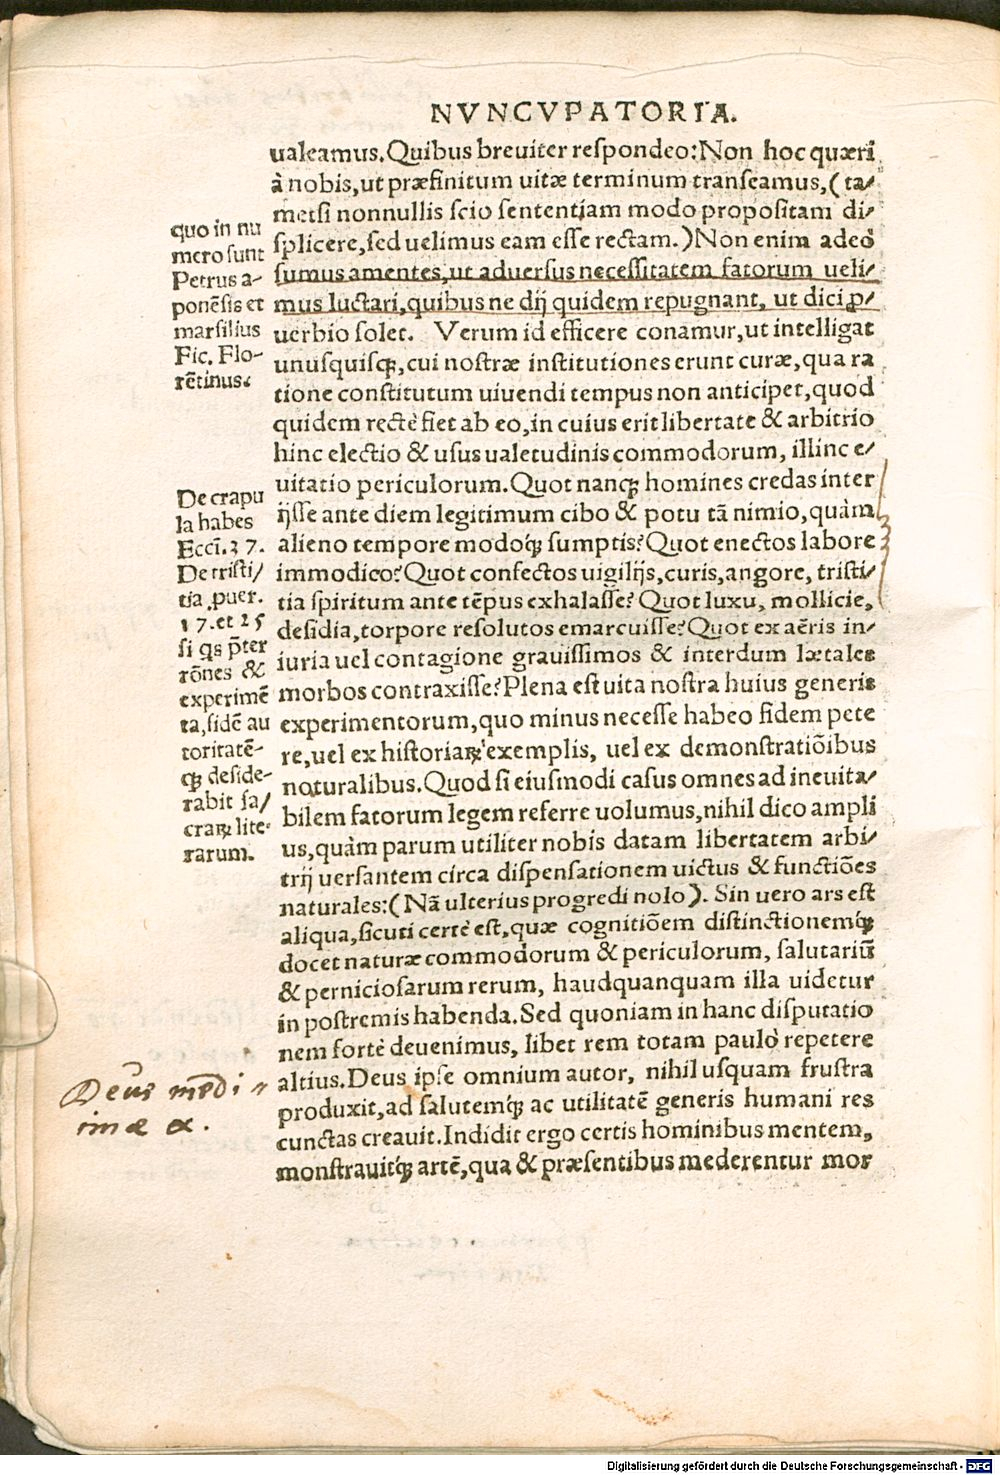 NVNCVPATORIA.
ualeamus.Quibus breuiter respondeo:Non hoc quæri
à nobis,ut præfinitum uitæ terminum transeamus,(ta/
metsi nonnullis scio sententiam modo propositam di/
splicere,sed uelimus eam esse rectam.)Non enim adeò
sumus amentes,ut aduersus necessitatem fatorum ueli/
mus luctari,quibus ne dij quidem repugnant, ut dici ꝓ/
uerbio solet. Verum id efficere conamur,ut intelligat
unusquisq́;,cui nostræ institutiones erunt curæ,qua ra
tione constitutum uiuendi tempus non anticipet,quod
quidem rectè fiet ab eo,in cuius erit libertate & arbitrio
hinc electio & usus ualetudinis commodorum, illinc e/
uitatio periculorum.Quot nanq́; homines credas inter
ijsse ante diem legitimum cibo & potu tã nimio,quàm
alieno tempore modoq́; sumptis?Quot enectos labore
immodico?Quot confectos uigilijs,curis,angore, tristi/
tia spiritum ante tẽpus exhalasse? Quot luxu, mollicie,
desidia,torpore resolutos emarcuisse?Quot ex aëris in/
iuria uel contagione grauissimos & interdum lætales
morbos contraxisse?Plena est uita nostra huius generis
experimentorum,quo minus necesse habeo fidem pete
re,uel ex historiaꝝ exemplis, uel ex demonstratiõibus
noturalibus.Quod si eiusmodi casus omnes ad ineuita/
bilem fatorum legem referre uolumus,nihil dico ampli
us,quàm parum utiliter nobis datam libertatem arbi/
trij uersantem círca dispensationem uictus & functiões
naturales:(Nã ulterius progredi nolo). Sin uero ars est
aliqua,sicuti certè est,quæ cognitiõem distinctionemq́;
docet naturæ commodorum & periculorum, salutariũ
& perniciosarum rerum, haudquanquam illa uidetur
in postremis habenda.Sed quoniam in hanc disputatio
nem fortè deuenimus, libet rem totam paulò repetere
altius.Deus ipse omnium autor, nihil usquam frustra
produxit,ad salutemq́; ac utilitatẽ generis humani res
cunctas creauit.Indidit ergo certis hominibus mentem,
monstrauitq́; artẽ,qua & præsentibus mederentur mor
quo in nu
mero sunt
Petrus a-
ponẽsis et
marsilius
Fic. Flo-
rẽtinus.
De crapu
la habes
Eccĩ.37.
De tristi/
tia ,puer.
17.et 25
si qs p̃ter
rõnes &
experimẽ
ta,fidẽ au
toritatẽ-
q́; deside-
rabit sa/
craꝝ lite-
rarum.
Deus medi
inæ α.
Digitalisierung gefördert durch die Deutsche Forschungsgemeinschaft - DFG